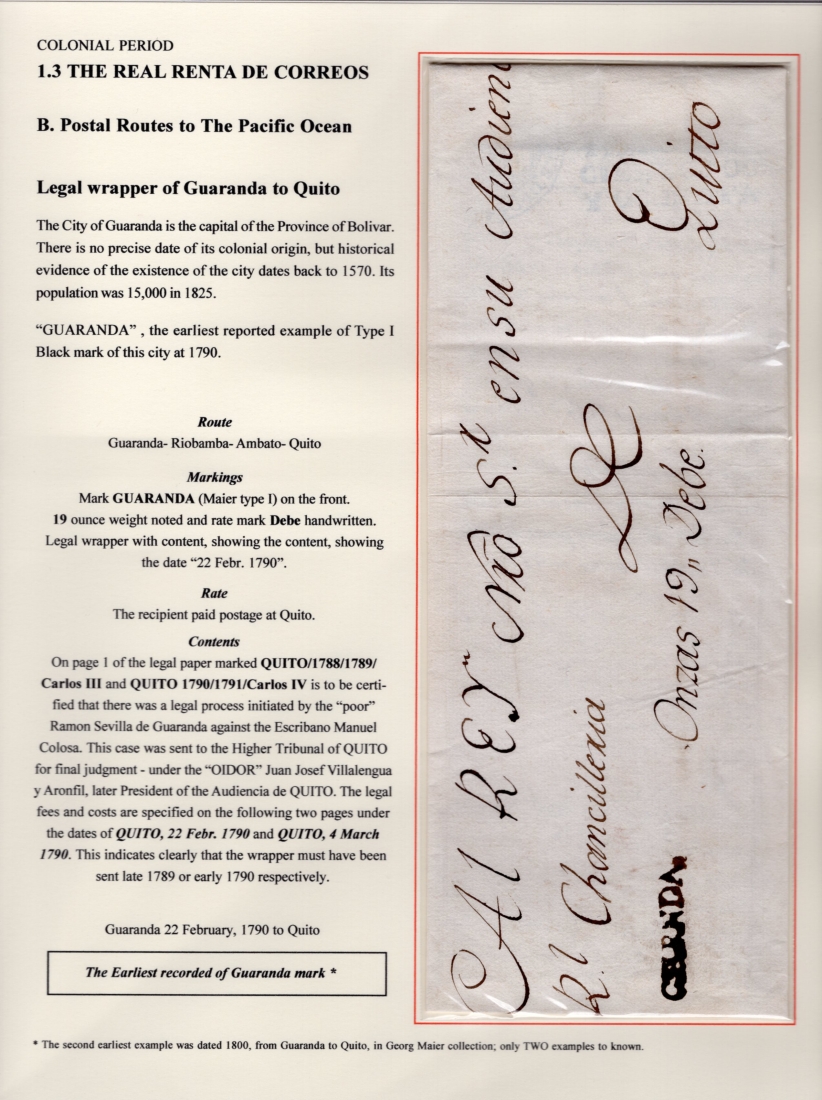 COLONIAL PERIOD
1.3 THE REAL RENTA DE CORREOS
B. Postal Routes to The Pacific Ocean
Legal wrapper of Guaranda to Quito
The City of Guaranda is the capital of the Province of Bolivar.
There is no precise date of its colonial origin, but historical
evidence of the existence of the city dates back to 1570. Its
population was 15,000 in 1825.
“GUARANDA” , the earliest reported example of Type I
Black mark of this city at 1790.
Route
Guaranda- Riobamba- Ambato- Quito
Markings
Mark GUARANDA (Maier type I) on the front.
19 ounce weight noted and rate mark Debe handwritten.
Legal wrapper with content, showing the content, showing
the date “22 Febr. 1790”.
Rate
The recipient paid postage at Quito.
Contents
On page 1 of the legal paper marked QUITO/1788/1789/
Carlos III and QUITO 1790/1791/Carlos IV is to be certi-
fied that there was a legal process initiated by the “poor”
Ramon Sevilla de Guaranda against the Escribano Manuel
Colosa. This case was sent to the Higher Tribunal of QUITO
for final judgment - under the “OIDOR” Juan Josef Villalengua
y Aronfil, later President of the Audiencia de QUITO. The legal
fees and costs are specified on the following two pages under
the dates of QUITO, 22 Febr. 1790 and QUITO, 4 March
1790. This indicates clearly that the wrapper must have been
sent late 1789 or early 1790 respectively.
Guaranda 22 February, 1790 to Quito
The Earliest recorded of Guaranda mark *
* The second earliest example was dated 1800, from Guaranda to Quito, in Georg Maier collection; only TWO examples to known.
Al REY Nro S.r en su Audien
R.l Chancilleria De Quito
Onzas 19,, Debe.